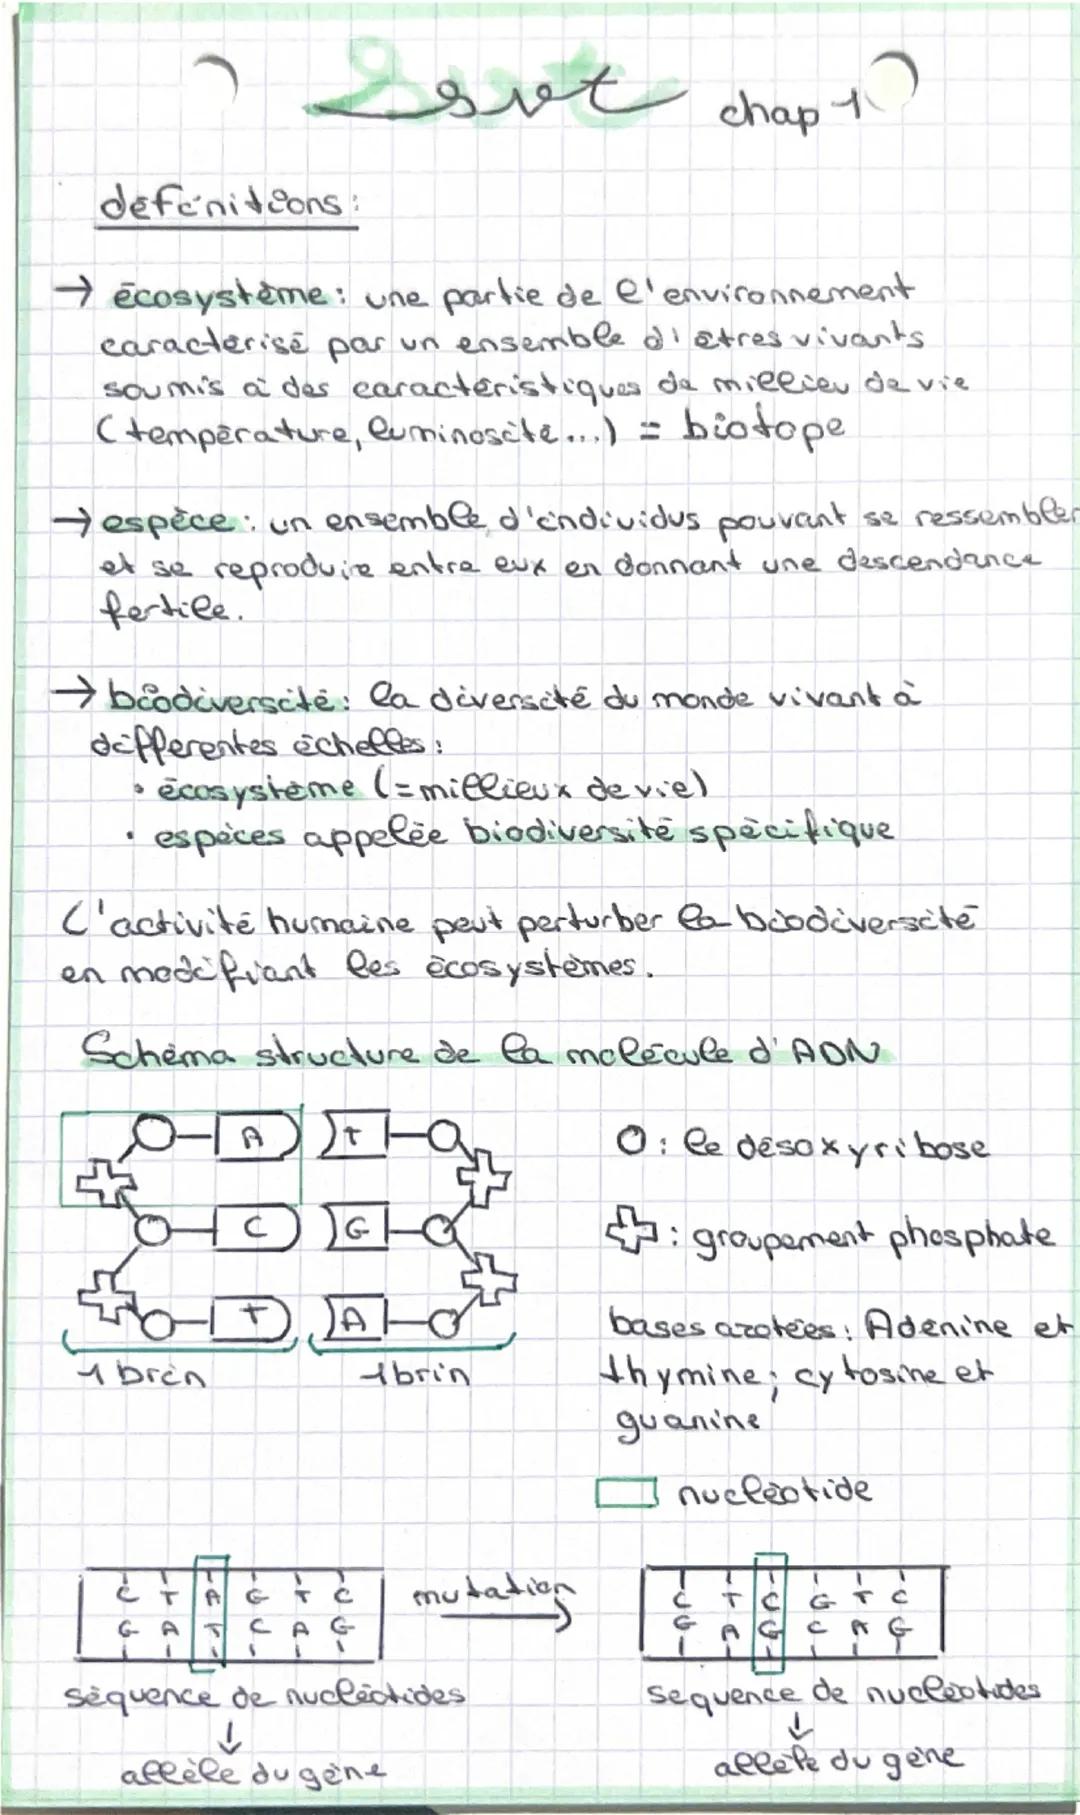 svt chap 1
définitions:
→ écosystème: une partie de l'environnement
caractérisé par un ensemble d'êtres vivants
soumis à des caractéristiques de millieu de vie
(température, luminosité...) = biotope
→ espèce: un ensemble d'individus pouvant se ressembler
et se reproduire entre eux en donnant une descendance
fertile.
→ biodiversité: la diversité du monde vivant à
différentes échelles:
• écosystème (=millieux de vie)
• espèces appelée biodiversité spécifique
L'activité humaine peut perturber la biodiversité
en modifiant les écosystèmes.
Schéma structure de la molécule d'ADN
A T
C G
T A
1 brin 1 brin
O: le désoxyribose
: groupement phosphate
bases azotées: Adénine et
thymine; cytosine et
guanine
nucléotide
C T A G T C
G A T C A G
mutation
C T C G T C
G A G C A G
séquence de nucléotides
↓
allèle du gène
séquence de nucléotides
↓
allèle du gène